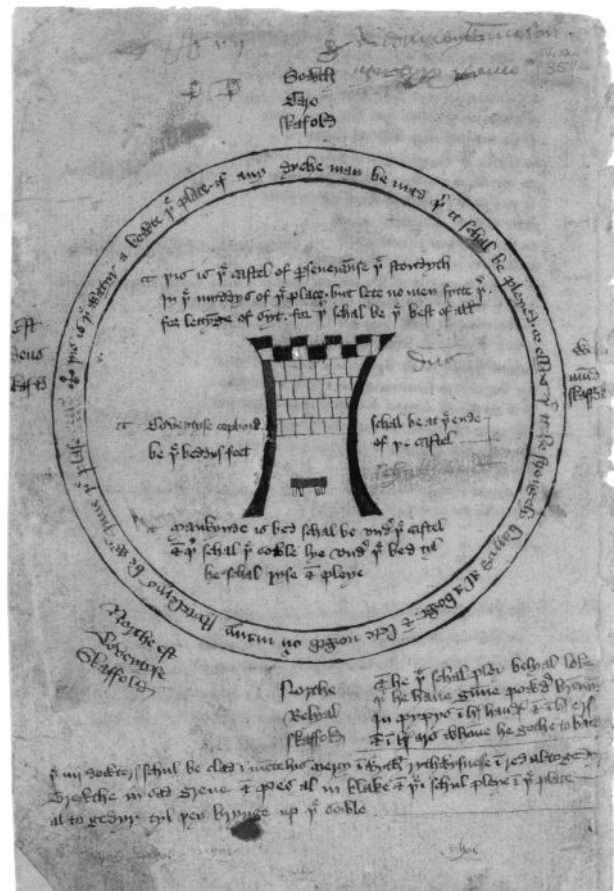 Sowth
Caro
skafold
þis is þe watyr a bowte þe place, if any dyche may be mad þer it schal be pleyed, or ellys þat it be strongely barryd al a bowt. & lete nowth ouer many stytelerys be with inne þe plase
þis is þe castel of perseueraunse þat stondyth
in þe myddys of þe place. but lete no men sytte þer
for lettynge of syt. for þer schal be þe best of all
Est
deus
skafold
We
mund
skaffold
Coveytyse copbord
be þe beddys feet
schal be at þe ende
of þe castel
Mankynde is bed schal be vndyr þe castel
& þer schal þe sowle lye vndyr þe bed tyl
he schal ryse & pleye
Northe est
Coveytyse
Skaffold
Northe
Belyal
skaffold
& he þat schal pley belyal loke
þat he haue gunne powdyr brennyng
in pypys in hys handys & in hys erys
& in hys ars whanne he gothe to batayl
þe iiij dowterys schul be clad in mentelys mercy in wyth rythwysnesse in red al togedyr
Trewthe in sad grene & pes al in blake & þei schul pleye in þe place
al to gedyr tyl þey brynge up þe sowle